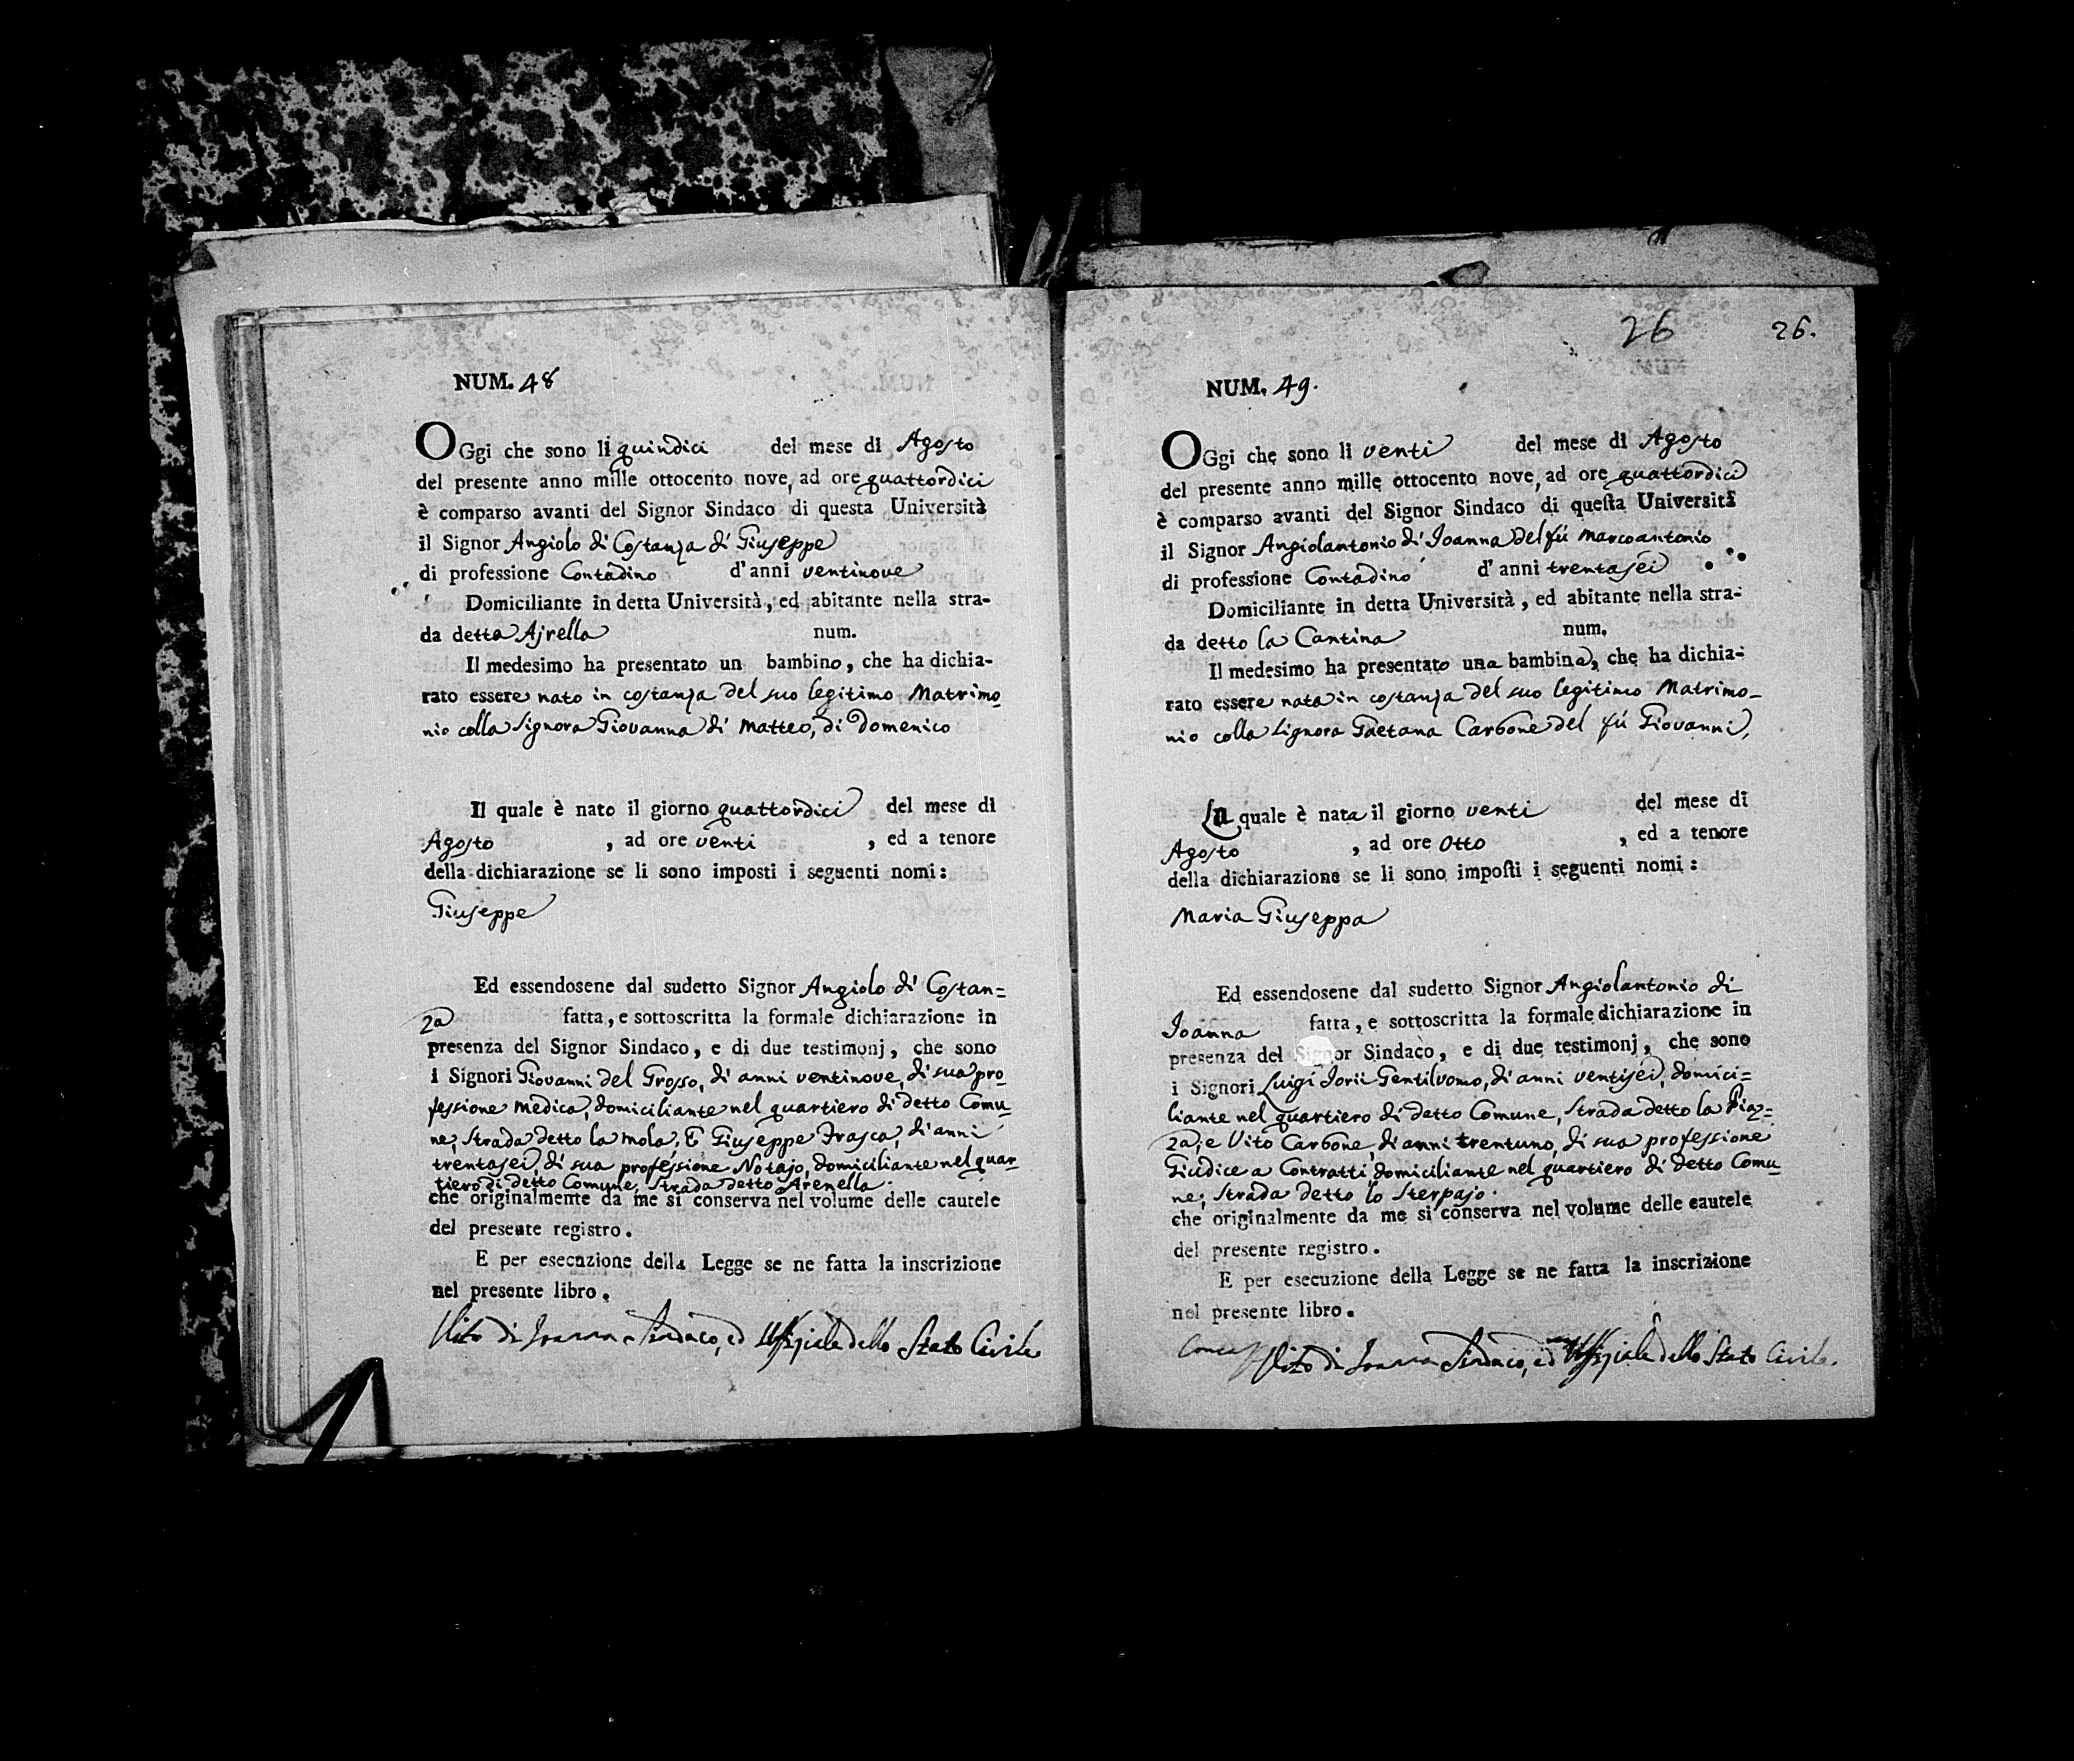 NUM. 48
OGgi che sono li quindici del mese di Agosto
del presente anno mille ottocento nove, ad ore quattordici
è comparso avanti del Signor Sindaco di questa Università
il Signor Angiolo di Costanza di Giuseppe
di professione Contadino d'anni ventinove
Domiciliante in detta Università, ed abitante nella stra-
da detta Ajrella num.
Il medesimo ha presentato un bambino, che ha dichia-
rato essere nato in costanza del suo legitimo Matrimo
nio colla Signora Giovanna di Matteo, di Domenico
Il quale è nato il giorno quattordici del mese di
Agosto , ad ore venti , ed a tenore
della dichiarazione se li sono imposti i seguenti nomi:
Giuseppe
Ed essendosene dal sudetto Signor Angiolo di Costan=
za fatta, e sottoscritta la formale dichiarazione in
presenza del Signor Sindaco, e di due testimonj, che sono
i Signori Giovanni del Grosso, di anni ventinove, di sua pro
fessione Medica, domiciliante nel quartiero di detto Comu
ne, Strada detto la Mola, E Giuseppe Frasca, di anni
trentasei, di sua professione Notajo, domiciliante nel quar
tiero di detto Comune, Strada detto Arenella.
che originalmente da me si conserva nel volume delle cautele
del presente registro.
E per esecuzione della Legge se ne fatta la inscrizione
nel presente libro.
Vito di Joanna Sindaco, ed Uffiziale dello Stato Civile
26 26.
NUM. 49.
OGgi che sono li venti del mese di Agosto
del presente anno mille ottocento nove, ad ore quattordici
è comparso avanti del Signor Sindaco di questa Università
il Signor Angiolantonio di Joanna del fù Marcoantonio
di professione Contadino d'anni trentasei
Domiciliante in detta Università, ed abitante nella stra-
da detto la Cantina num.
Il medesimo ha presentato una bambina, che ha dichia-
rato essere nata in costanza del suo legitimo Matrimo-
nio colla Signora Gaetana Carbone del fù Giovanni,
La quale è nata il giorno venti del mese di
Agosto , ad ore Otto , ed a tenore
della dichiarazione se li sono imposti i seguenti nomi:
Maria Giuseppa
Ed essendosene dal sudetto Signor Angiolantonio di
Joanna fatta, e sottoscritta la formale dichiarazione in
presenza del Signor Sindaco, e di due testimonj, che sono
i Signori Luigi Iorii Gentiluomo, di anni ventisei, domici=
liante nel quartiero di detto Comune, Strada detto la Piaz=
za, e Vito Carbone, di anni trentuno, di sua professione
Giudice a Contratti domiciliante nel quartiero di detto Comu
ne, Strada detto lo Sterpajo.
che originalmente da me si conserva nel volume delle cautele
del presente registro.
E per esecuzione della Legge se ne fatta la inscrizione
nel presente libro.
Vito di Joanna Sindaco, ed Uffiziale dello Stato Civile.